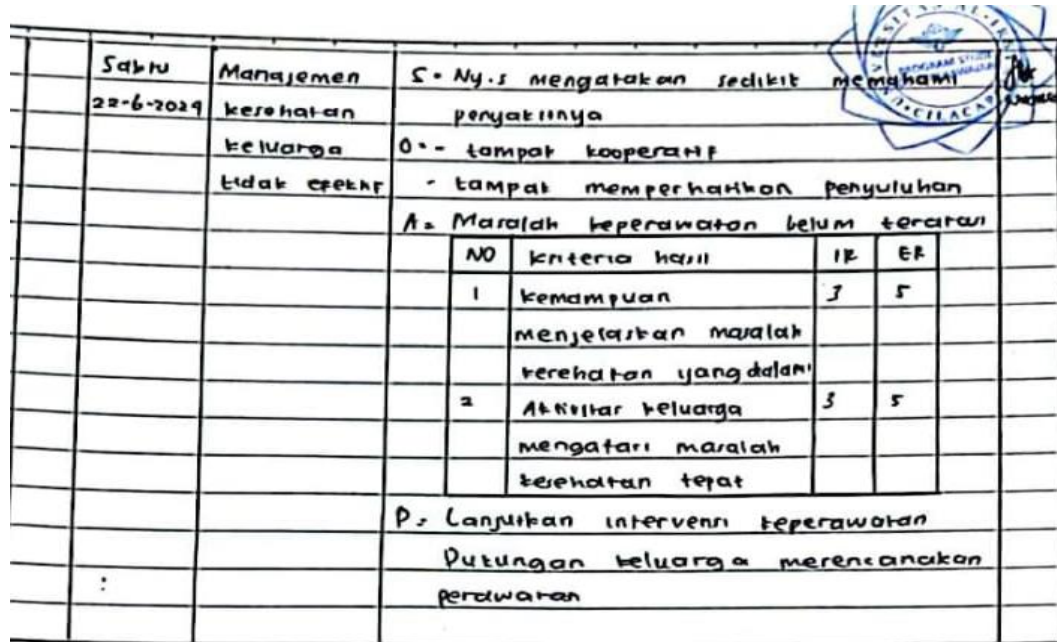 Sabtu
22-6-2024
Manajemen
kesehatan
keluarga
tidak efektif
S = Ny.S mengatakan sedikit memahami
penyakitnya
O = - tampak kooperatif
- tampak memperhatikan penyuluhan
A = Masalah keperawatan belum teratasi
NO kriteria hasil IR ER
1 kemampuan 3 5
menjelaskan masalah
kesehatan yang dalami
2 Aktivitas keluarga 3 5
mengatasi masalah
kesehatan tepat
P = Lanjutkan intervensi keperawatan
Dukungan keluarga merencanakan
perawatan
PROGRAM STUDI
CILACAP